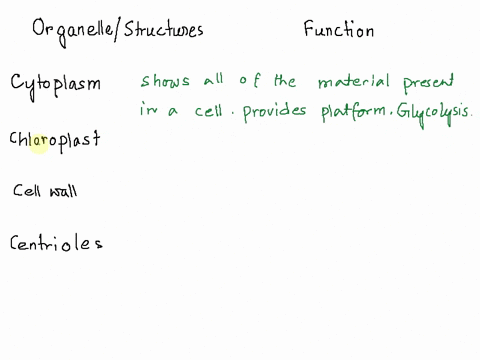 Organelle/Structures Function
Cytoplasm shows all of the material present
in a cell. provides platform. Glycolysis.
Chloroplast
Cell wall
Centrioles